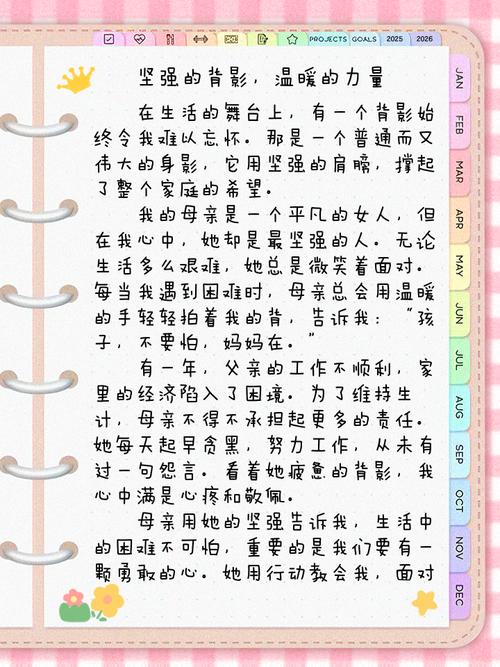 PROJECTS GOALS 2025 2026
坚强的背影，温暖的力量
在生活的舞台上，有一个背影始
终令我难以忘怀。那是一个普通而又
伟大的身影，它用坚强的肩膀，撑起
了整个家庭的希望。
我的母亲是一个平凡的女人，但
在我心中，她却是最坚强的人。无论
生活多么艰难，她总是微笑着面对。
每当我遇到困难时，母亲总会用温暖
的手轻轻拍着我的背，告诉我：“孩
子，不要怕，妈妈在。”
有一年，父亲的工作不顺利，家
里的经济陷入了困境。为了维持生
计，母亲不得不承担起更多的责任。
她每天起早贪黑，努力工作，从未有
过一句怨言。看着她疲惫的背影，我
心中满是心疼和敬佩。
母亲用她的坚强告诉我，生活中
的困难不可怕，重要的是我们要有一
颗勇敢的心。她用行动教会我，面对
JAN
FEB
MAR
APR
MAY
JUN
JUL
AUG
SEP
OCT
NOV
DEC